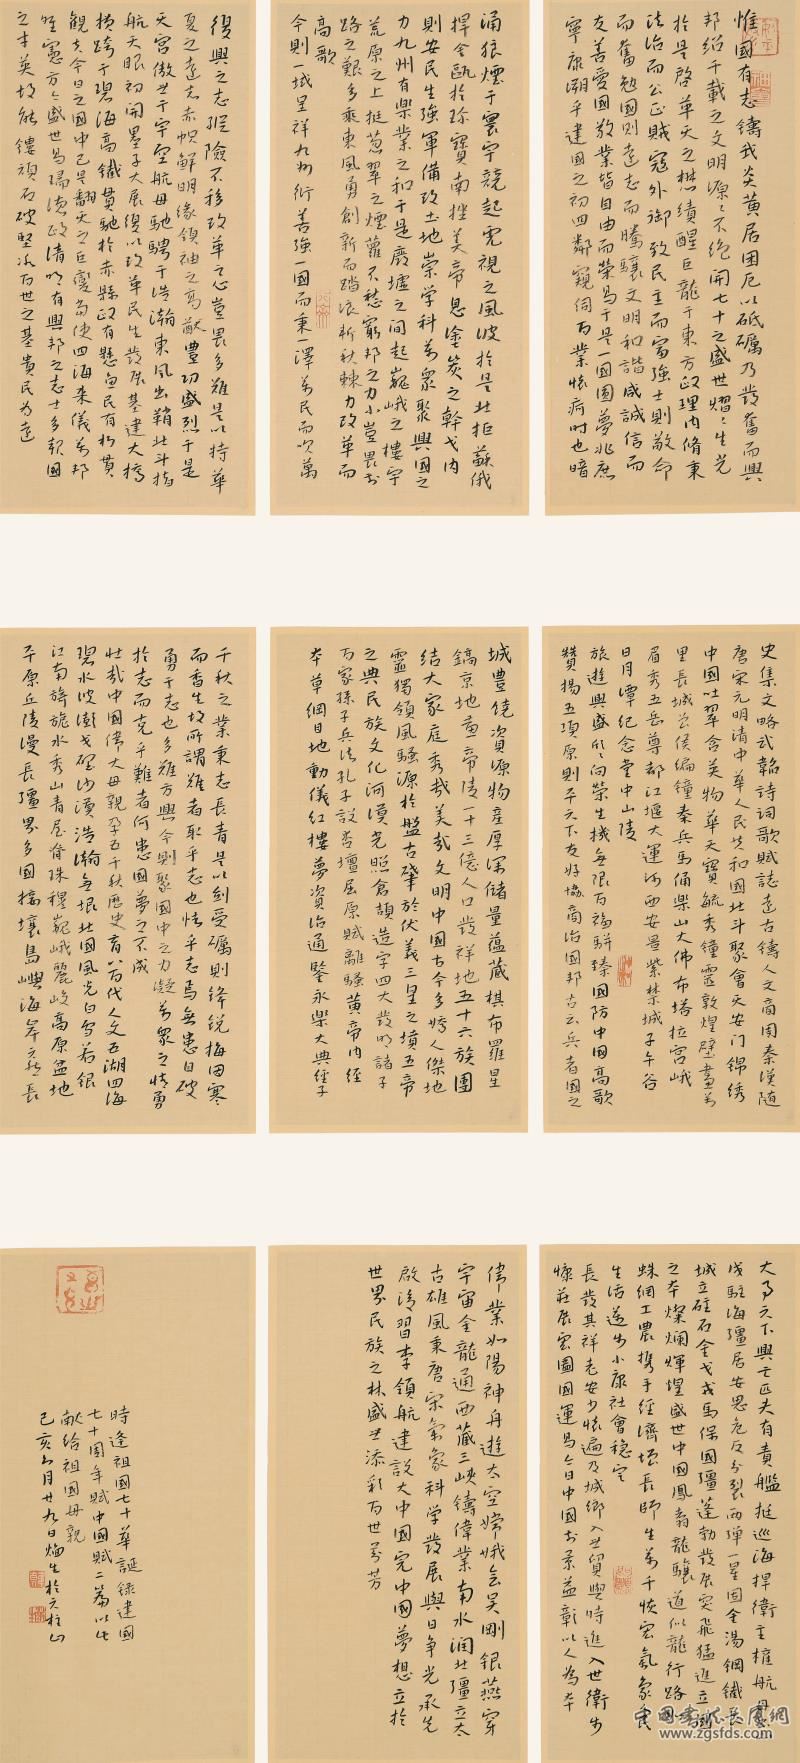 惟國有志鑄我炎黃居困厄以砥礪乃發奮而興
邦紹千載之文明源源不絕開七十之盛世熠熠生光
於是啓華夭之懋績醒巨龍于東方政理內脩秉
法治而公正賊寇外御致民主而富強士則敬命
而奮勉國則遠志而騰驤文明和諧咸誠信而
友善愛國敬業皆自由而榮焉于是一國圓夢兆庶
寧康溯乎建國之初四鄰窺伺百業悵病時也暗
涌狼煙于寰宇競起虎視之風波於是北拒蘇俄
捍金甌於珍寶南挫美帝息塗炭之幹戈內
則安民生強軍備改土地崇学科萬眾聚興國之
力九州有樂業之和于是廢墟之間起巍峨之樓宇
荒原之上挺蔥翠之煙蘿不愁窮邦之力小豈畏前
路之艱多乘東風勇創新而踏浪斬秋棘力改革而
高歌
今則一域呈祥九州衍善強一國而秉一澤萬民而吹萬
復興之志縱險不移改革之心豈畏多難是以持華
夏之遠志赤幟鮮明緣領袖之高猷豐功盛烈于是
天宮傲世于宇空航母馳騁于浩瀚東風出鞘北斗指
航天眼初開墨子大展復以改革民生發展基建大橋
橫跨于碧海高鐵貫馳於赤縣政有懸魚民有朽貫
觀夫今日之國中已是翻天之巨變當使四海來儀萬邦
盛世烏瑞德政清明有興邦之志士多報國
之才英故能鏤頑石破堅冰百世之基貴民為遠
千秋之業秉志長青是以剑受礪則鋒銳梅因寒
而香生故所謂難者耿乎志也怯乎志焉無患自破
勇于志也多難方興今則聚國中之力凝萬眾之情勇
於志而克乎難者何患國夢之不成
壯哉中國偉大母親孕五千秋歷史育八百代人文五湖四海
碧水波澎戈壁沙漠浩瀚無垠北國風光白雪若銀
江南旖旎水秀山青屋脊珠穆巍峨麗峻高原盆地
平原丘陵漫長疆界多國接壤島嶼海岸
城豐饒資源物產厚深儲量蘊藏棋布羅星
鎬京地黃帝陵一十三億人口發祥地五十六族團
結大家庭秀哉美哉文明中國古今多嬌人傑地
靈獨領風騷源於盤古肇於伏義三皇之墳五帝
之典民族文化河漢光照倉頡造字四大發明諸子
百家孫子兵法孔子說杏壇屈原賦離騷黃帝內經
本草綱目地動儀紅樓夢資治通鑒永樂大典經子
史集文略武韜詩詞歌賦誌遠古鑄人文商周秦漢隨
唐宋元明清中華人民共和國北斗聚會天安门錦绣
中國吐翠含英物華天寶毓秀鐘靈敦煌壁畫萬
里長城曾侯編鐘秦兵馬俑樂山大佛布塔拉宮峨
眉秀五岳尊都江堰大運河西安墨紫禁城子午谷
日月潭紀念堂中山陵
旅遊興盛欣向榮生機無限百福駢臻國防中國高歌
贊揚五項原則平天下友好協商治國邦古云兵者國之
大事天下興亡匹夫有責艦艇巡海捍衛主權航母
戍駐海疆居安思危反分裂兩彈一星固金湯鋼鐵長
城立砫石金戈戎馬保國疆蓬勃發展突飛猛進立
之本燦爛輝煌盛世中國鳳翥龍驤道似龍行路
蛛網工農携手經濟增長師生萬千恢宏氣象民
生活逐步小康社會穩定
長發其祥老安少懷遍及城鄉入世貿與時進入世衛步
慷莊展宏圖國運昌今日中國前景益彰以人為本
偉業如陽神舟遊太空嫦娥会吴剛銀燕穿
宇宙金龍通西藏三峽鑄偉業南水润北疆立太
古雄風秉唐宋氣象科学發展與日争光承先
啟後習李領航建設大中國完中國夢想立於
世界民族之林盛世添彩百世芬芳
時逢祖國七十華誕錄建國
七十周年賦中國賦二篇以此
献給祖國母親
己亥六月廿九日烟生於天柱山
中国书法展赛网
www.zgsfds.com